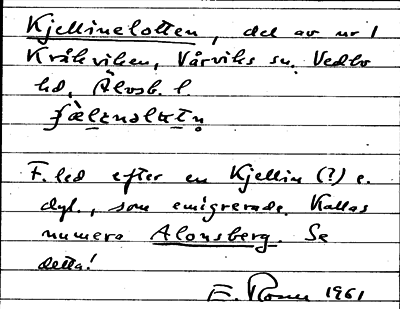 Kjellinelotten, del av nr 1
Kråkviken, Vårviks sn. Vedbo
hd, Älvsb. l.
F. led efter en Kjellin (?) e.
dyl., som emigrerade. Kallas
numera Alonsberg. Se
detta!
E. Rosen 1961